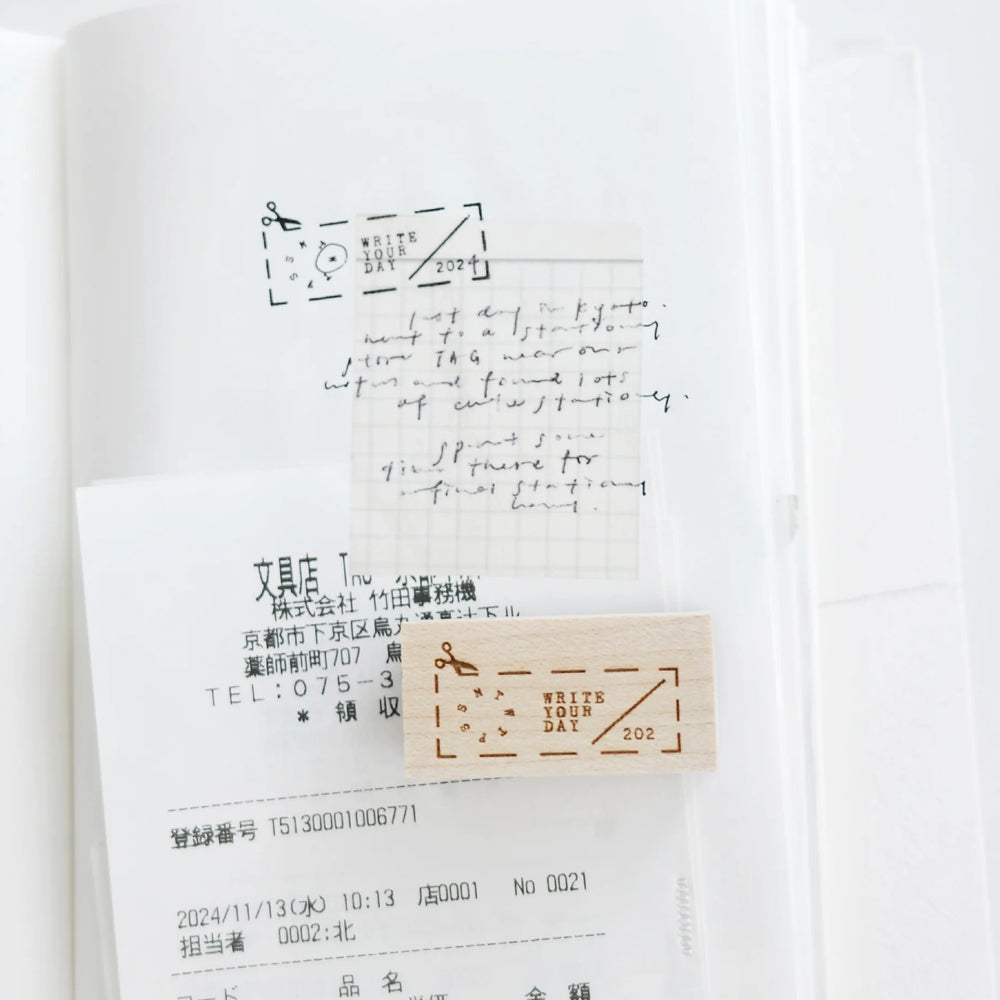 WRITE
YOUR
DAY
2024
last day in Kyoto.
went to a stationery
store TAG near our
and found lots
of cute stationery.
spent some
time there for
stationery
文具店
株式会社 竹田事務機
京都市下京区烏丸通高辻下ル
薬師前町707 烏
TEL:075-3
* 領 収
WRITE
YOUR
DAY
202
登録番号 T5130001006771
2024/11/13(水) 10:13 店0001 No 0021
担当者 0002:北
コード 品 名
金 額